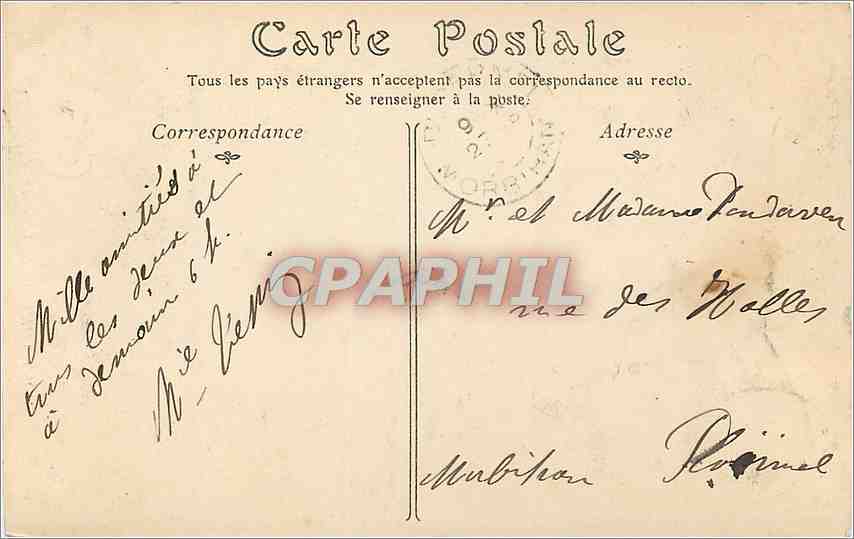 Carte Postale
Tous les pays étrangers n'acceptent pas la correspondance au recto.
Se renseigner à la poste.
Correspondance
Mille amitiés à
tous les deux et
à demain 6 h.
Mie
Adresse
MORBIHAN
Mr et Madame Pondaven
rue des Halles
Morbihan Ploërmel
CPAPHIL